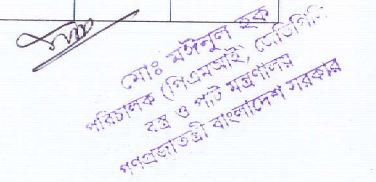 মোঃ মঈনুল হক
পরিচালক (পিএমআই), জেডিপিসি
বস্ত্র ও পাট মন্ত্রণালয়
গণপ্রজাতন্ত্রী বাংলাদেশ সরকার